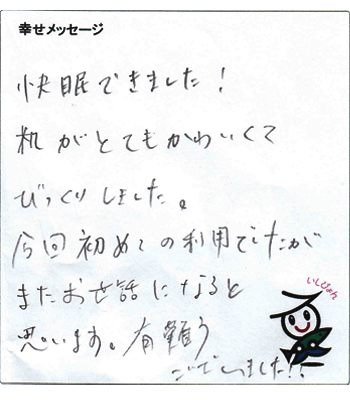 幸せメッセージ
快眠できました!
机がとてもかわいくて
びっくりしました。
今回初めての利用でしたが
またお世話になると
思います。有難う
ございました!!
いしぴょん